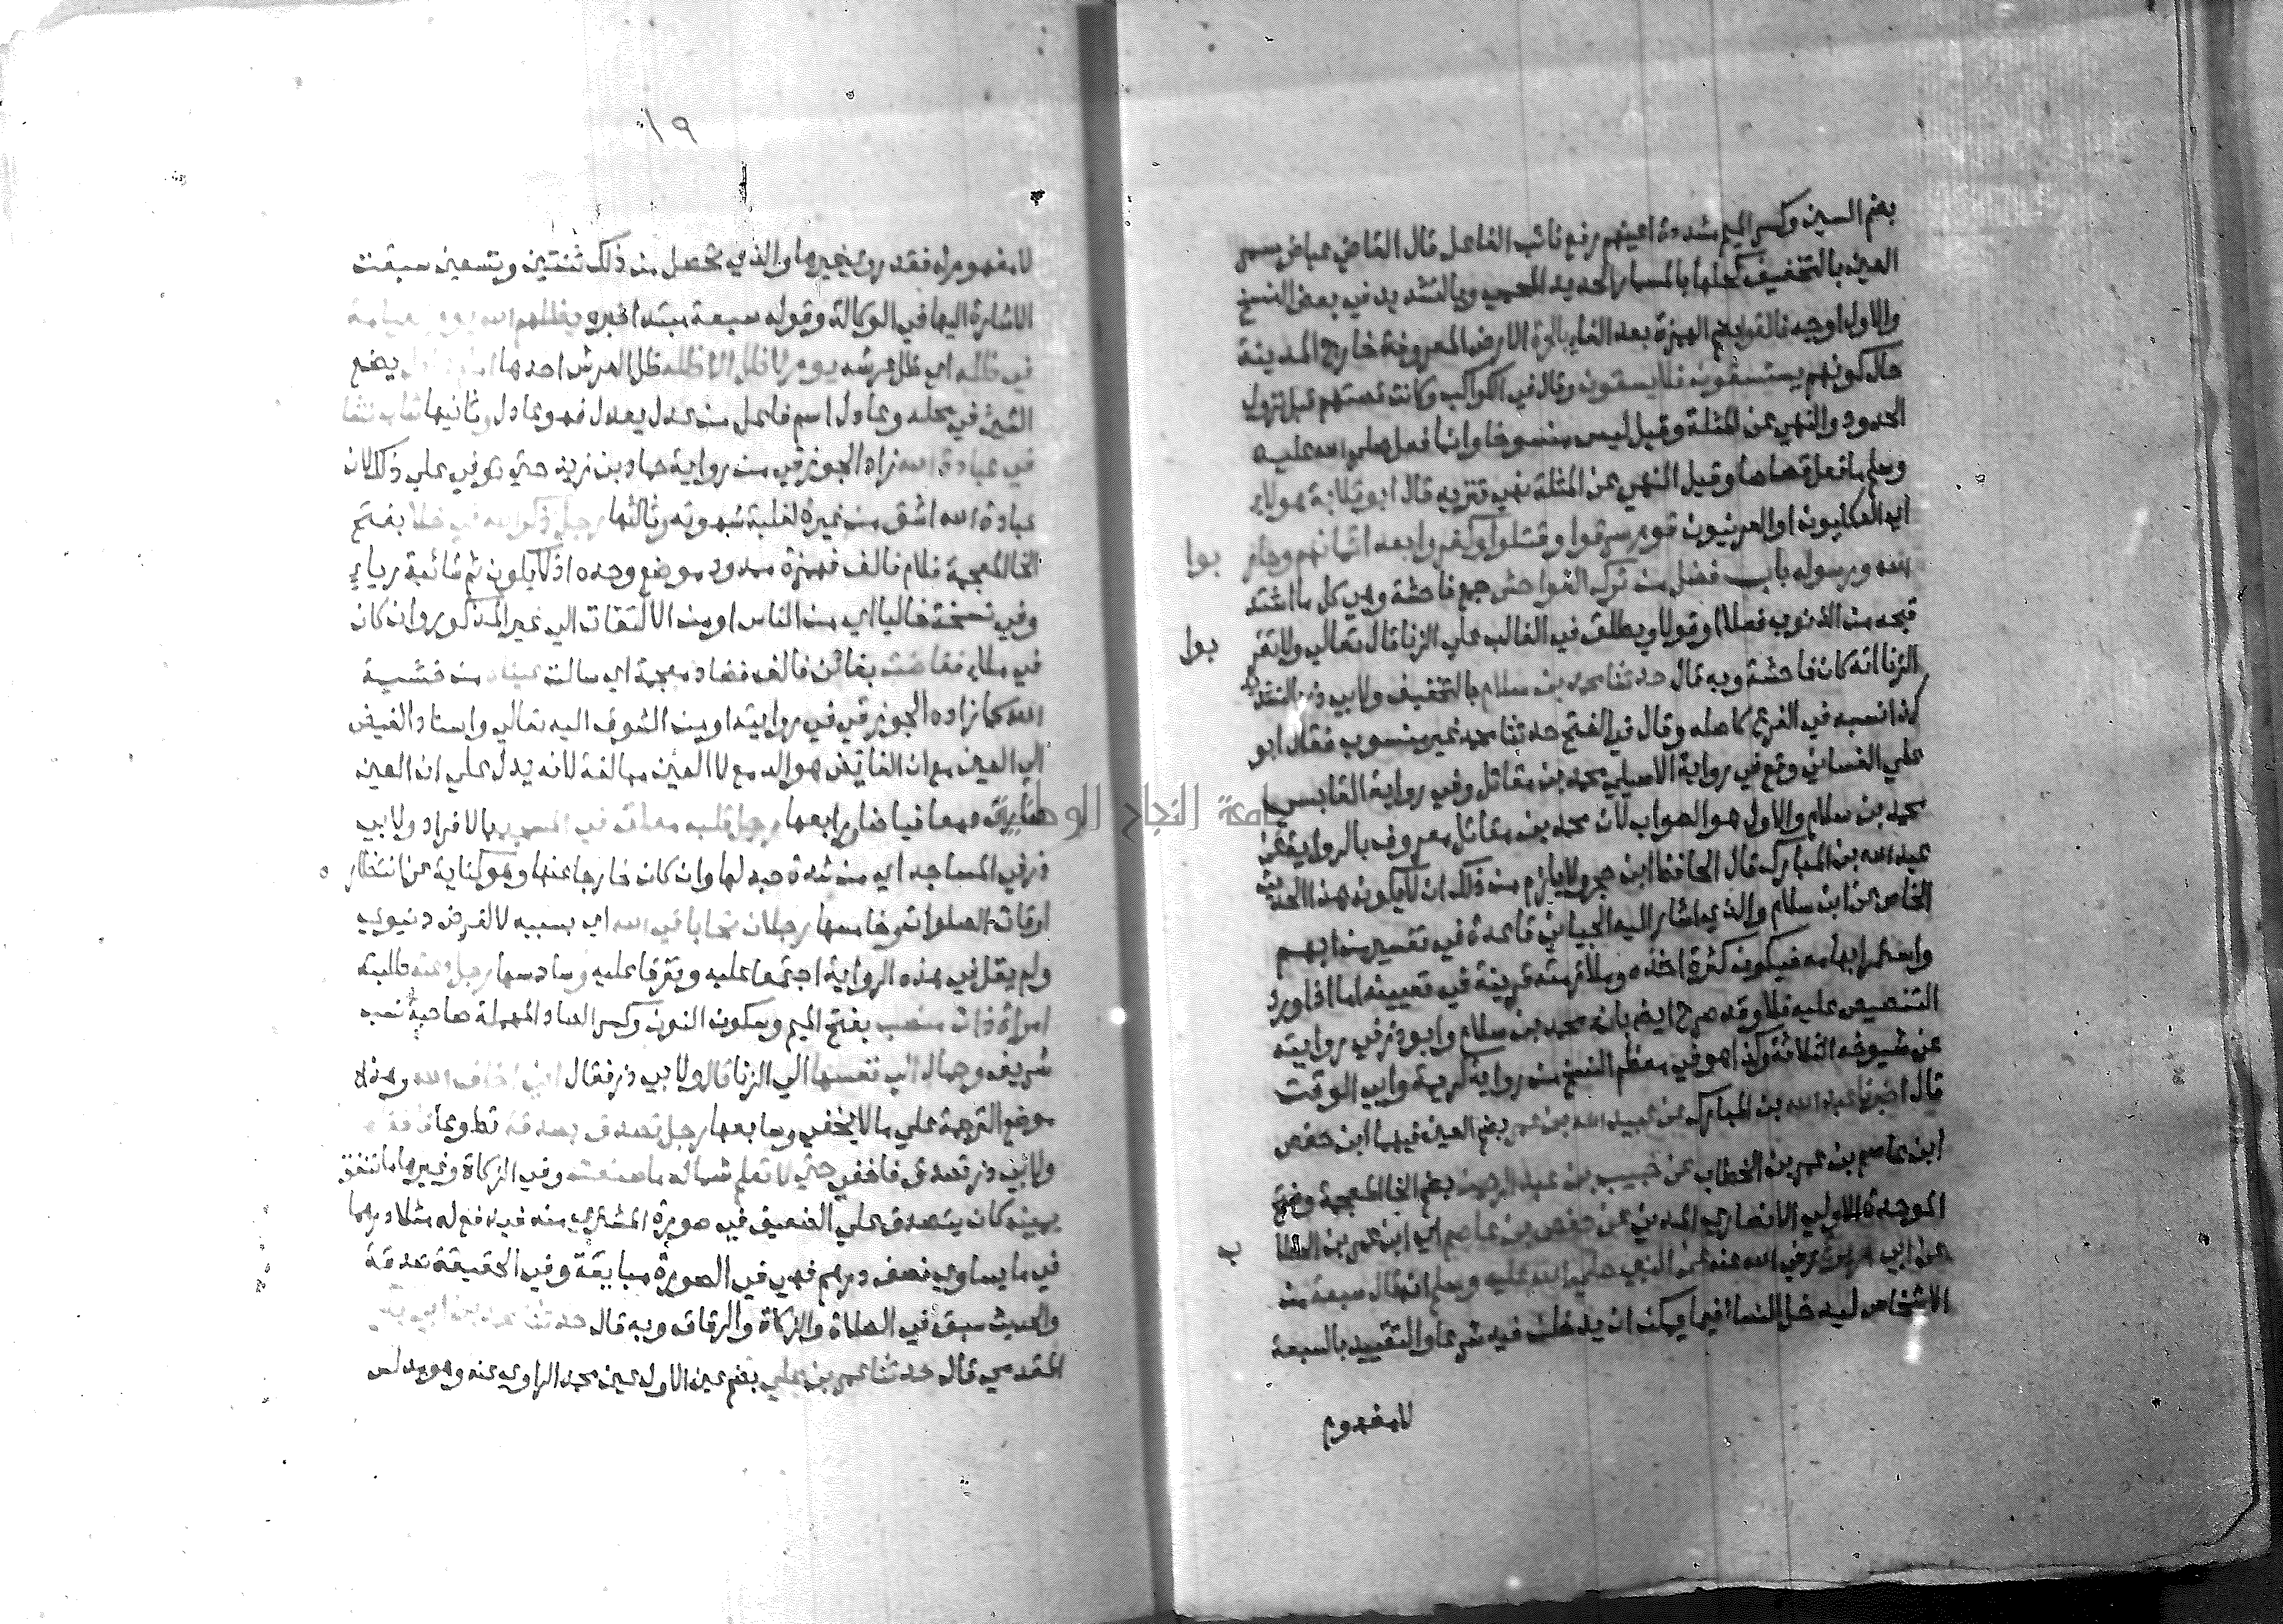 بضم السين وكسر الميم مشددة اعينهم رفع نائب الفاعل قال القاضي عياض يسمر
العين بالتخفيف كحلها بالمسمار الحديد المحمي وبالتشديد في بعض النسخ
والاول اوجه فالقوا بضم الهمزة بعد الفاء بالحرة الارض المعروفة خارج المدينة
حال كونهم يستسقون فلا يسقون وقال في الكواكب وكانت قصتهم قبل نزول
الحدود والنهي عن المثلة وقيل ليس منسوخا وانما فعل صلى الله عليه
وسلم ما فعل قصاصا وقيل النهي عن المثلة نهي تنزيه قال ابو قلابة هولاء
اي العكليون او العرنيون قوم سرقوا وقتلوا وكفروا بعد ايمانهم وحاربوا
الله ورسوله باب فضل من ترك الفواحش جمع فاحشة وهي كل ما اشتد
قبحه من الذنوب فعلا او قولا ويطلق في الغالب علي الزنا قال تعالي ولا تقربوا
الزنا انه كان فاحشة وبه قال حدثنا محمد بن سلام بالتخفيف ولابي ذر بالتشديد
كذا نسبه في الفرع كاصله وقال في الفتح حدثنا محمد غير منسوب فقال ابو
علي الغساني وقع في رواية الاصيلي محمد بن مقاتل وفي رواية القابسي
محمد بن سلام والاول هو الصواب لان محمد بن مقاتل معروف بالرواية عن
عبد الله بن المبارك قال الحافظ ابن حجر ولا يلزم من ذلك ان لا يكون هذا الحديث
الخاص عن ابن سلام والذي اشار اليه الجياني قاعدة في تفسير من ابهم
واستمر ابهامه فيكون كثرة اخذه وملازمته قرينة في تعيينه اما اذا ورد
التنصيص عليه فلا وقد صرح ايضا بانه محمد بن سلام وابو ذر في روايته
عن شيوخه الثلاثة وكذا هو في معظم النسخ من رواية كريمة وابي الوقت
قال اخبرنا عبد الله بن المبارك عن عبيد الله بن عمر بضم العين فيهما ابن حفص
ابن عاصم بن عمر بن الخطاب عن خبيب بن عبد الرحمن بضم الخا المعجمة وفتح
الموحدة الاولي الانصاري المدني عن حفص بن عاصم اي ابن عمر بن الخطاب
عن ابي هريرة رضي الله عنه عن النبي صلي الله عليه وسلم انه قال سبعة من
الاشخاص ليدخل النساء فيما يمكن ان يدخلن فيه شرعا والتقييد بالسبعة
لا مفهوم
١٩
لا مفهوم له فقد روي غيرها والذي تحصل من ذلك ثنتين وتسعين سبقت
الاشارة اليها في الوكالة وقوله سبعة مبتدا خبره يظلهم الله يوم القيامة
في ظله اي ظل عرشه يوم لا ظل الا ظله ظل العرش احدها امام عادل يضع
الشيئ في محله وعادل اسم فاعل من عدل يعدل فهو عادل وثانيها شاب نشا
في عبادة الله زاد الجوزقي من رواية حماد بن زيد حتي توفي علي ذلك لان
عبادة الله اشق من غيره لغلبة شهوته وثالثها رجل ذكر الله في خلاء بفتح
الخا المعجمة فلام فالف فهمزة ممدود موضع وحده اذ لا يكون ثم شائبة رياء
وفي نسخة خاليا اي من الناس او من الالتفات الي غير المذكور وان كان
في ملاء ففاضت بفائن فالف فضاد معجمة اي سالت عيناه من خشية
الله كما زاده الجوزقي في روايته او من الشوق اليه تعالي واسناد الفيض
الي العين مع ان الفائض هو الدمع لا العين مبالغة لانه يدل علي ان العين
صارت دمعا فياضا ورابعها رجل قلبه معلق في المسجد بالافراد ولابي
ذر في المساجد اي من شدة حبه لها وان كان خارجا عنها وهو كناية عن انتظار
اوقات الصلوات وخامسها رجلان تحابا في الله اي بسببه لا لغرض دنيوي
ولم يقل في هذه الرواية اجتمعا عليه وتفرقا عليه وسادسها رجل دعته طالبته
امراة ذات منصب بفتح الميم وسكون النون وكسر الصاد المهملة صاحبة نسب
شريف وجمال الي نفسها الي الزنا قال ولابي ذر فقال اني اخاف الله وهذا
موضع الترجمة علي ما لا يخفي وسابعها رجل تصدق بصدقة تطوعا
ولابي ذر تصدق فاخفي حتي لا تعلم شماله ما صنعت وفي الزكاة وغيرها ما تنفق
يمينه كان يتصدق علي الضعيف في صورة المشتري منه فيدفع له مثلا درهما
في ما يساوي نصف درهم فهي في الصورة مبايعة وفي الحقيقة صدقة
والحديث سبق في الصلاة والزكاة والرقاق وبه قال حدثنا محمد بن ابي بكر
المقدمي قال حدثنا عمر بن علي بضم عين الاول عين محمد الراوي عنه وهو مدلس
جامعة النجاح الوطنية